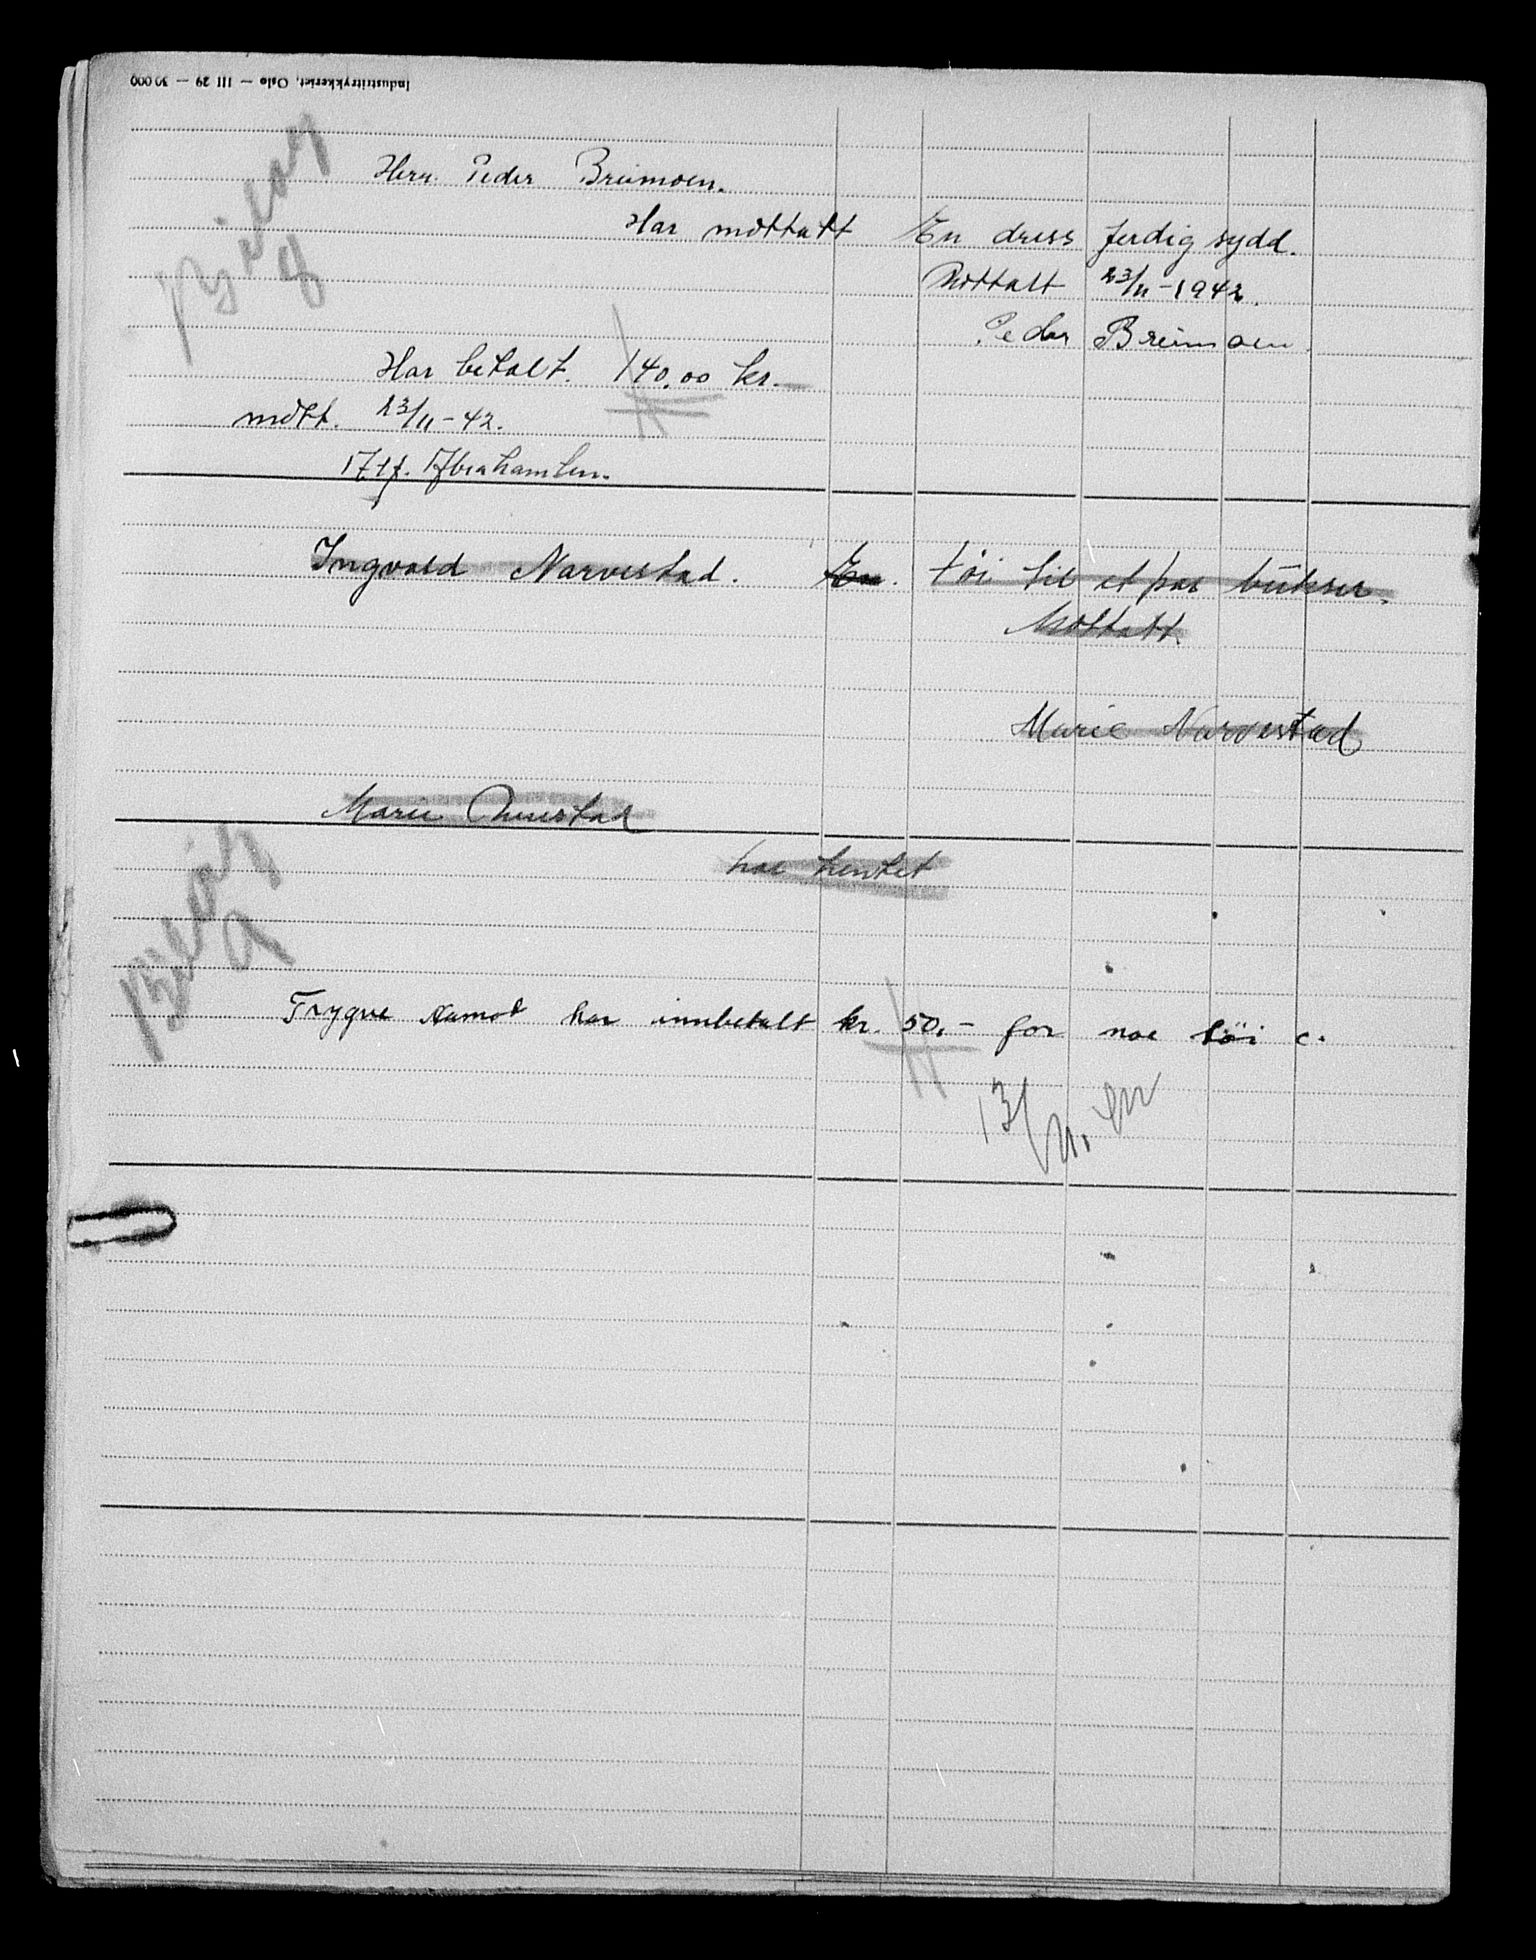 Industritrykkeriet, Oslo — III 29 — 30 000
Herr Peder Breimoen.
Har mottatt En dress ferdig sydd.
Mottatt 23/11-1942.
Peder Breimoen
Har betalt. 140,00 kr.—
mott. 23/11-42.
Abrahamsen.
Bilag
Ingvald Narvestad. En. töi til et par bükser.
Mottatt
Marie Narvestad
Marie
har hentet
Bilag
Trygve Aamot har innbetalt kr. 50,- for noe töi c.
13/11.